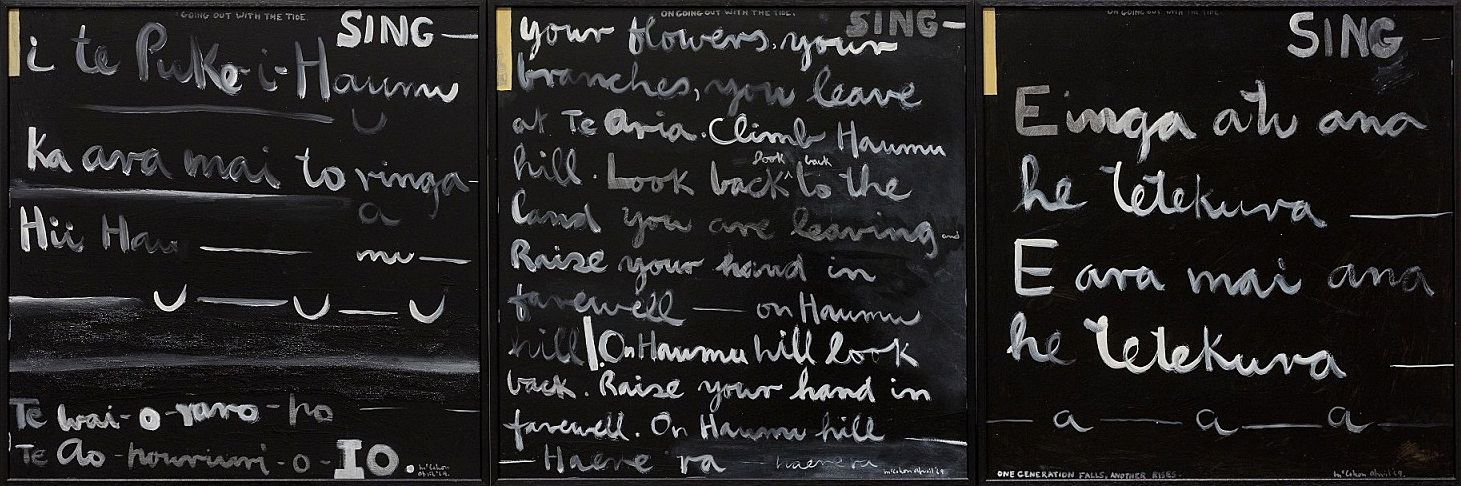 GOING OUT WITH THE TIDE.
SING —
i te Puke-i-Haumu
u
Ka ara mai to ringa
a
Hii Hau — mu —
u — u — u
Te wai-o-raro-po —
Te Ao-houriuri-o-IO.
McCahon
April '69.
ON GOING OUT WITH THE TIDE.
SING —
your flowers, your
branches, you leave
at Te Aria. Climb Haumu
look back
hill. Look back ^ to the
land you are leaving and
Raise your hand in
farewell — on Haumu
hill | On Haumu hill look
back. Raise your hand in
farewell. On Haumu hill —
— Haere ra — haere ra
McCahon April '69
ON GOING OUT WITH THE TIDE.
SING —
E inga atu ana
he tetekura —
E ara mai ana
he tetekura —
— a — a — a
ONE GENERATION FALLS, ANOTHER RISES.
McCahon April '69.